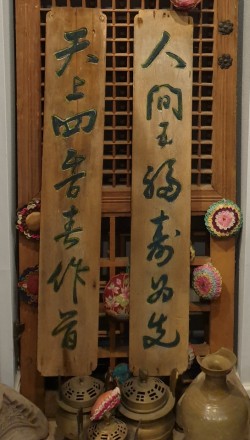 人間五福壽為先
天上四旹春作首